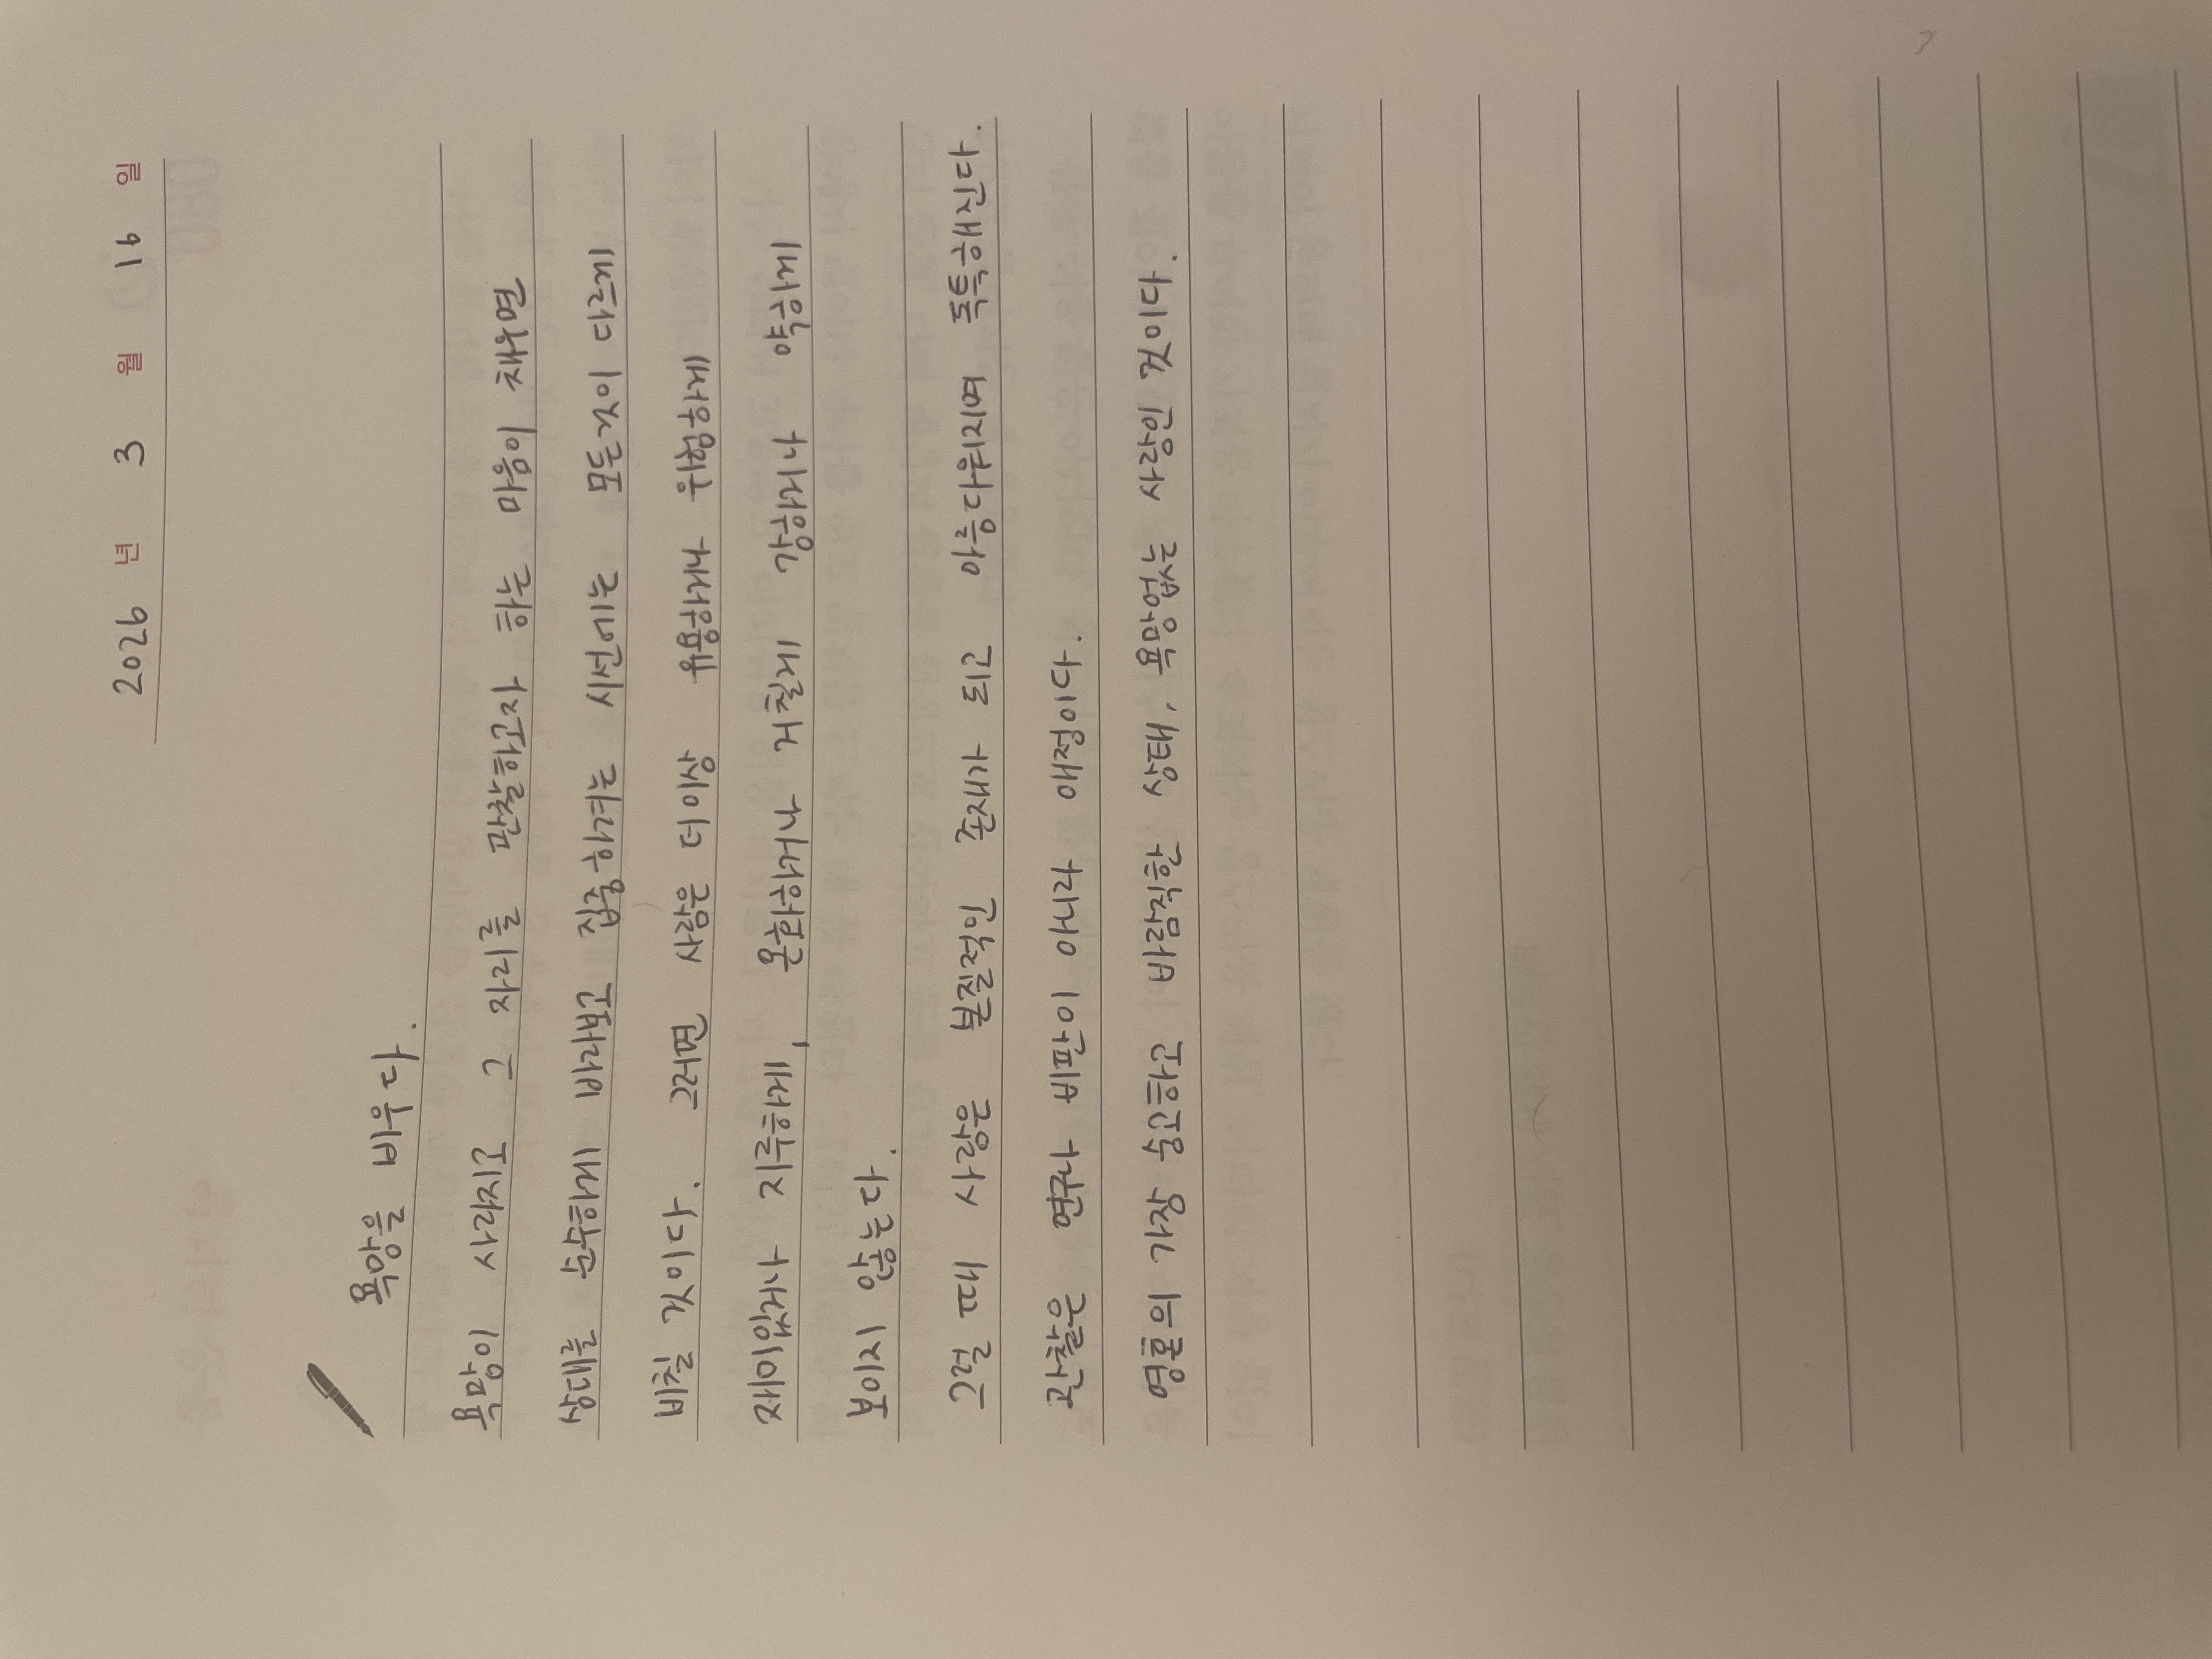 2026 년 3 월 16 일
욕망을 비우다.
욕망이 사라지고 그 자리를 관찰하고자 하는 마음이 채우면
상대를 순수하게 바라보고 집중하려는 시선에는 모든것이 다르게
비칠 것이다. 그러면 사람은 더이상 유용하거나 위험하게
재미있거나 지루하게, 온화하거나 거칠게 강하거나 약하게
보이지 않는다.
그럴 때 사람은 본질적인 존재가 되고 아름다워지며 독특해진다.
관찰은 연구나 비판이 아니라 애정이다.
영혼의 가장 숭고하고 바람직한 상태, 욕망없는 사랑인 것이다.